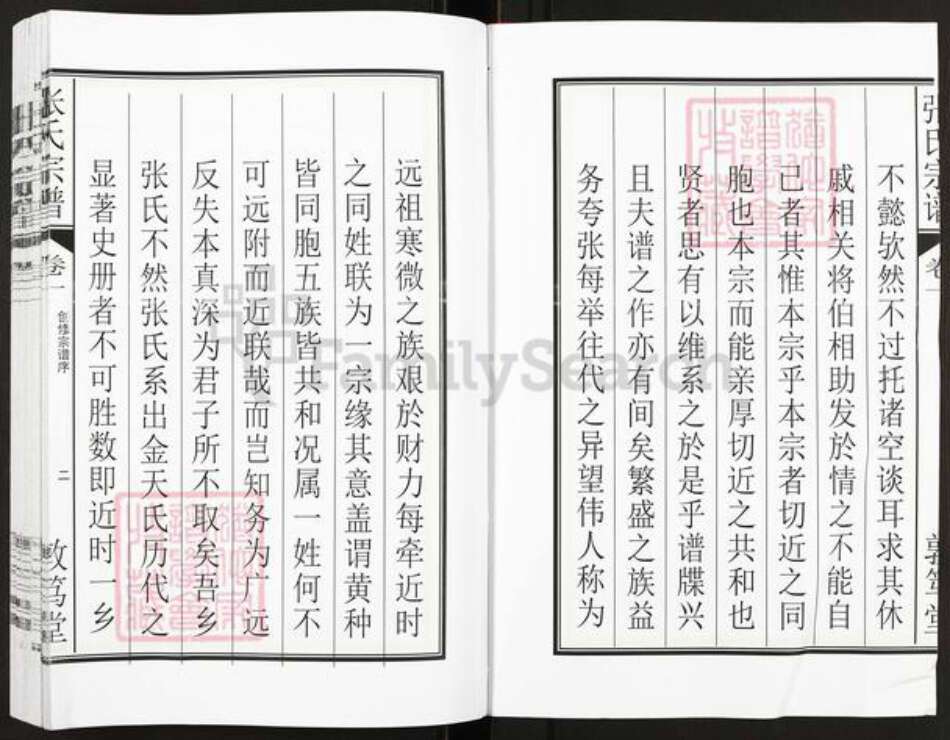 张氏宗谱
卷一
敦笃堂
不懿欤然不过托诸空谈耳求其休
戚相关将伯相助发於情之不能自
已者其惟本宗乎本宗者切近之同
胞也本宗而能亲厚切近之共和也
贤者思有以维系之於是乎谱牒兴
且夫谱之作亦有间矣繁盛之族益
务夸张每举往代之异望伟人称为
远祖寒微之族艰於财力每牵近时
之同姓联为一宗缘其意盖谓黄种
皆同胞五族皆共和况属一姓何不
可远附而近联哉而岂知务为广远
反失本真深为君子所不取矣吾乡
张氏不然张氏系出金天氏历代之
显著史册者不可胜数即近时一乡
张氏宗谱
卷一
创修宗谱序
二
敦笃堂
FamilySearch